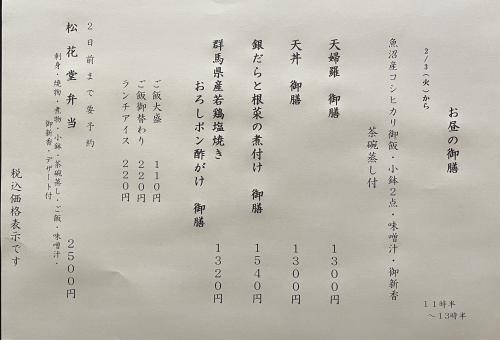 お昼の御膳
11時半
～13時半
2/3(火)から
魚沼産コシヒカリ御飯・小鉢2点・味噌汁・御新香
茶碗蒸し付
天婦羅 御膳 1300円
天丼 御膳 1300円
銀だらと根菜の煮付け 御膳 1540円
群馬県産若鶏塩焼き
おろしポン酢がけ 御膳 1320円
ご飯大盛 110円
ご飯御替わり 220円
ランチアイス 220円
2日前まで要予約
松花堂弁当 2500円
刺身・焼物・煮物・小鉢・茶碗蒸し・ご飯・味噌汁・
御新香・デザート付
税込価格表示です